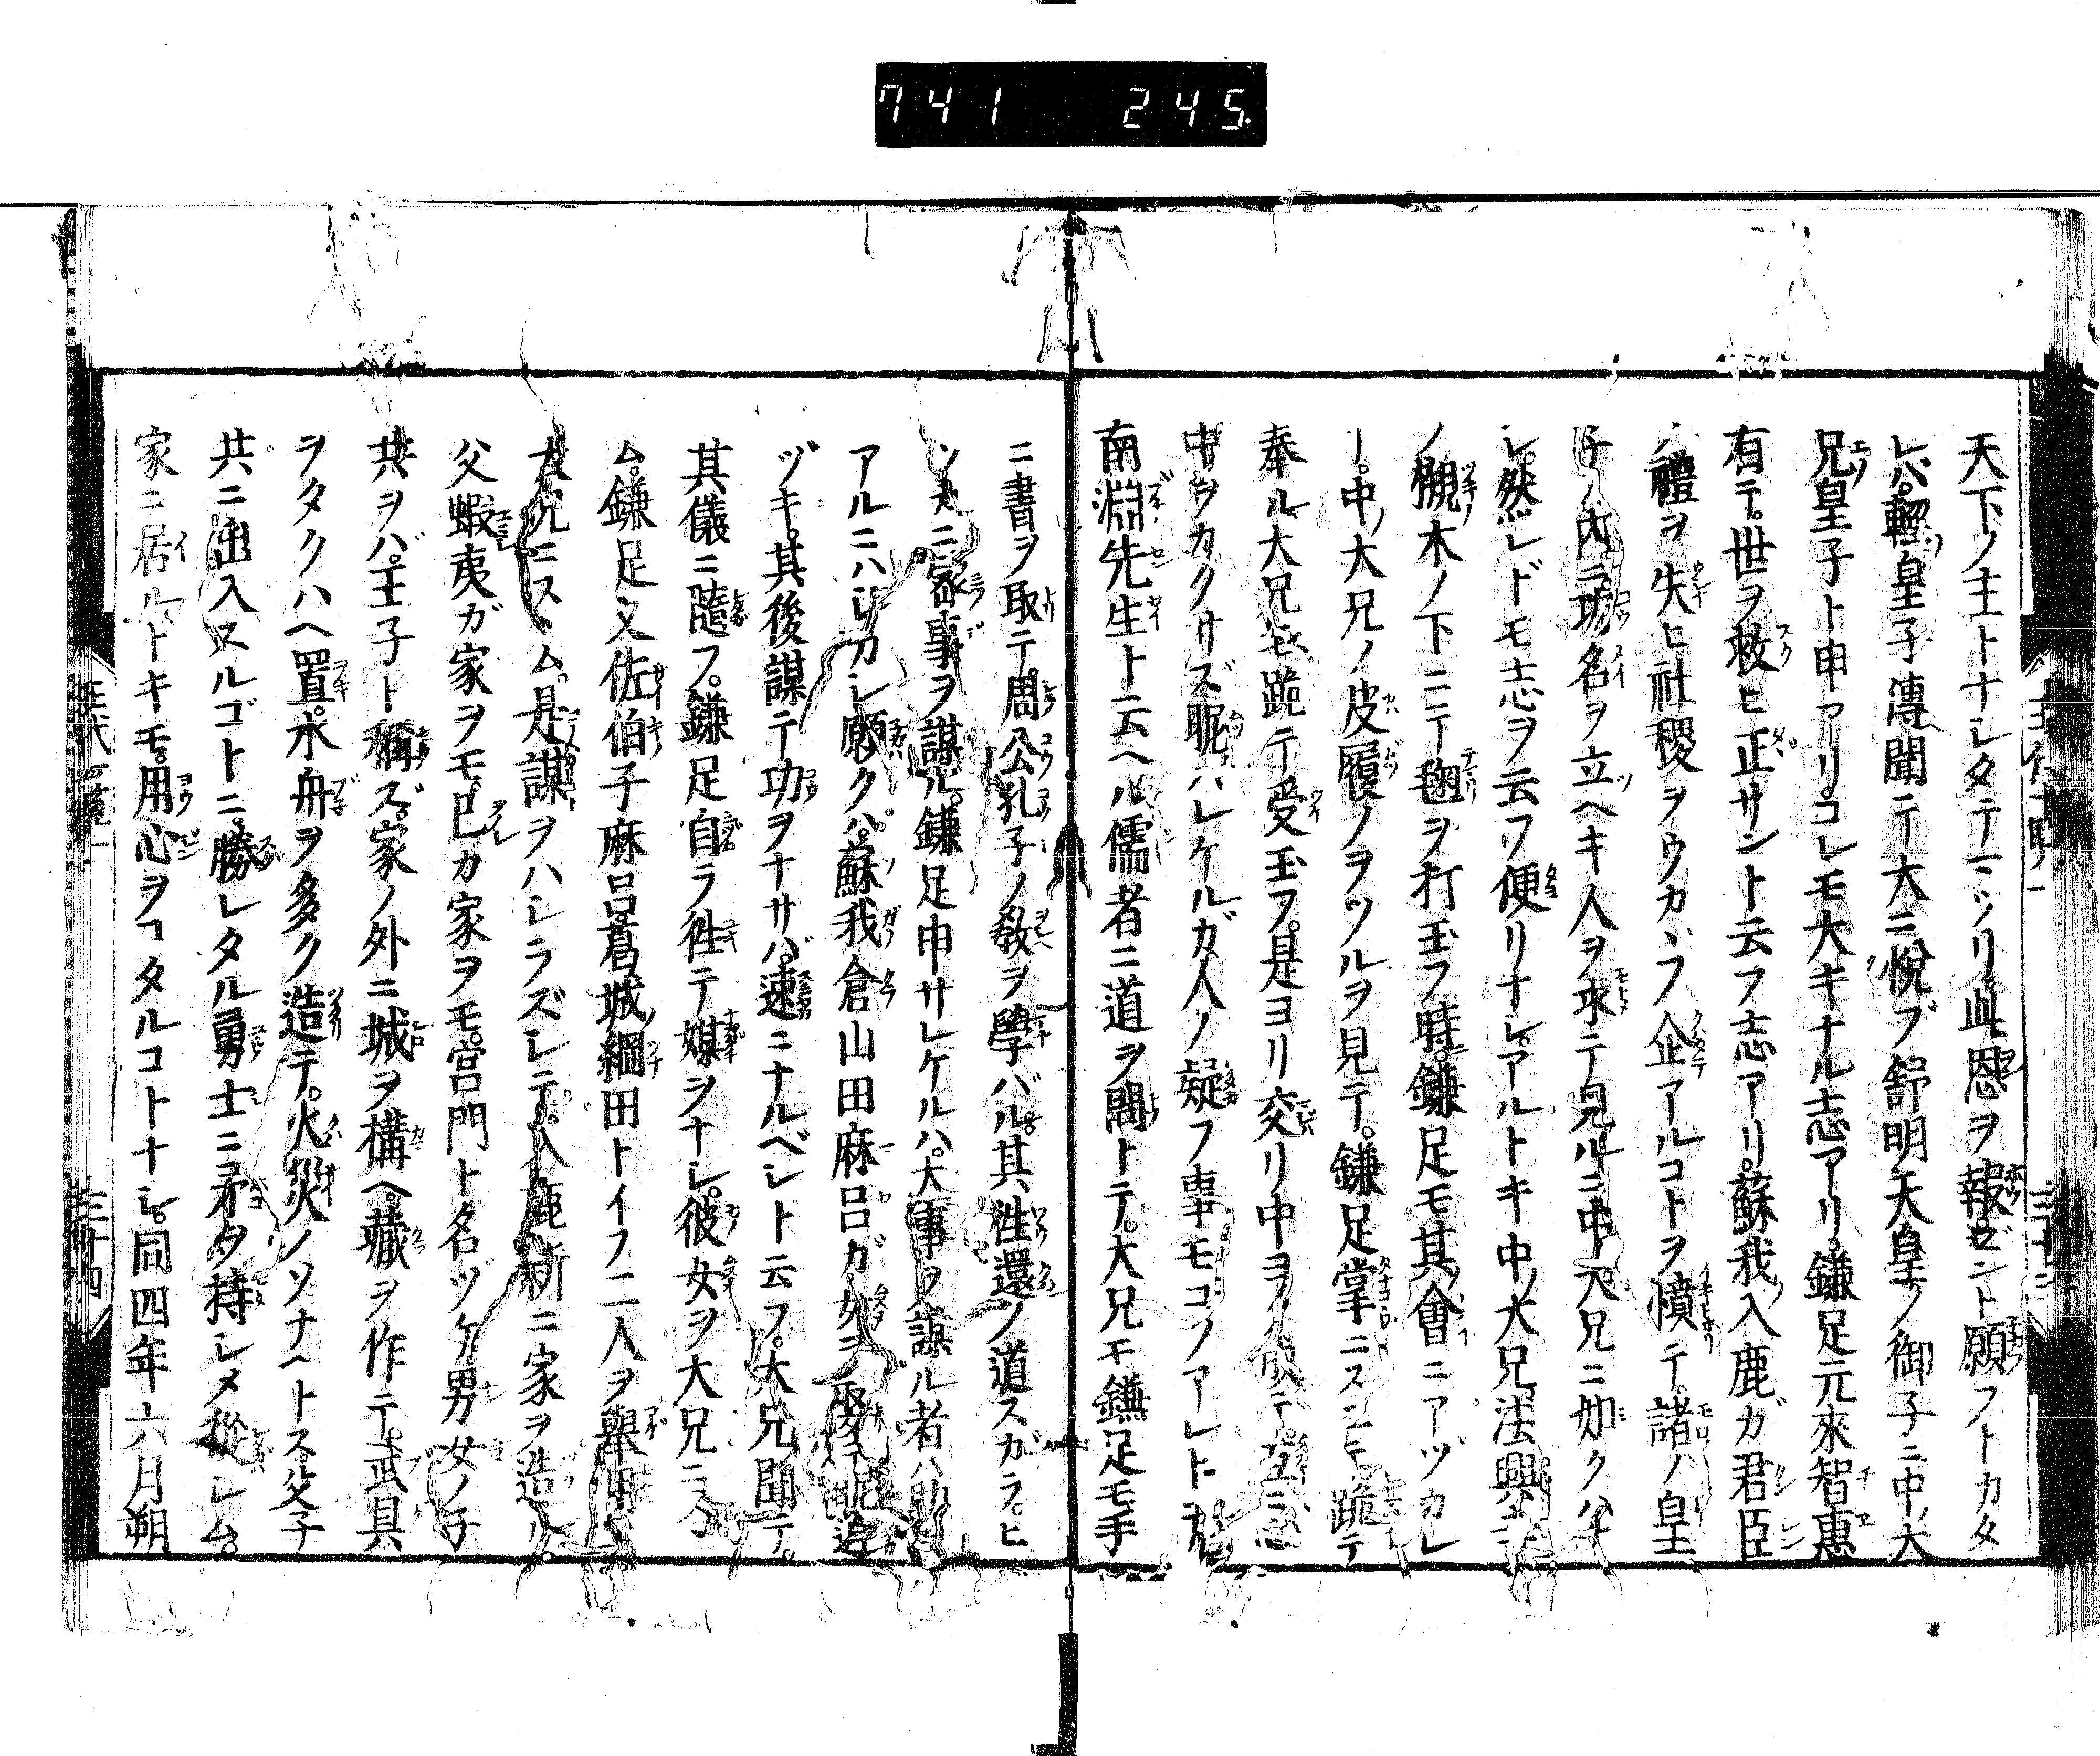 741 245.
天下ノ主トナシタテマツリ。此恩ヲ報ゼント願フトカタ
レバ。輕皇子傳聞テ大ニ悅ブ舒明天皇ノ御子ニ中大
兄皇子ト申アリ。コレモ大キナル志アリ。鎌足元來智惠
有テ。世ヲ救ヒ正サント云フ志アリ。蘇我入鹿ガ君臣
ノ禮ヲ失ヒ社稷ヲウカヽフ企アルコトヲ憤テ。諸ノ皇
子ノ内ニ功名ヲ立ヘキ人ヲ求テ見ルニ中大兄ニ如クハナ
シ。然レドモ志ヲ云フ便リナシ。アルトキ中ノ大兄法興寺
ノ槻木ノ下ニテ毱ヲ打玉フ時。鎌足モ其會ニアヅカレ
ー。中ノ大兄ノ皮履ノヲツルヲ見テ。鎌足掌ニスヘテ跪テ
奉ル大兄モ跪テ受玉フ。是ヨリ交リ中ヨク成テ。互ニ志
中ヲカクサズ昵ハレケルガ。人ノ疑フ事モコソアレト
南淵先生ト云ヘル儒者ニ道ヲ問トテ。大兄モ鎌足モ手
ニ書ヲ取テ。周公孔子ノ敎ヲ學バル。其徃還ノ道スガラ。ヒ
ソカニ密事ヲ謀ル。鎌足申サレケルハ。大事ヲ謀ル者ハ助
アルニハシカシ願クハ。蘇我倉山田麻呂ガ女ヲ娶テ昵近
ヅキ。其後謀テ功ヲナサバ。速ニナルベシト云フ。大兄聞テ。
其儀ニ隨フ。鎌足自ラ徃テ媒ヲナシ。彼女ヲ大兄ニ
ム。鎌足又佐伯子麻呂葛城ノ綱田トイフ二人ヲ擧用
大兄ニスヽム。是謀ヲハレラズシテ。入鹿新ニ家ヲ造ル。
父蝦夷ガ家ヲモ。已カ家ヲモ。宮門ト名ヅケ。男女ノ子
共ヲハ。王子ト稱ズ。家ノ外ニ城ヲ構ヘ。藏ヲ作テ。武具
ヲタクハヘ置。水舟ヲ多ク造テ。火災ノソナヘトス。父子
共ニ出入スルゴトニ。勝レタル勇士ニ矛タ持シメ從レム。
家ニ居ルトキモ。用心ヲコタルコトナシ。同四年六月朔